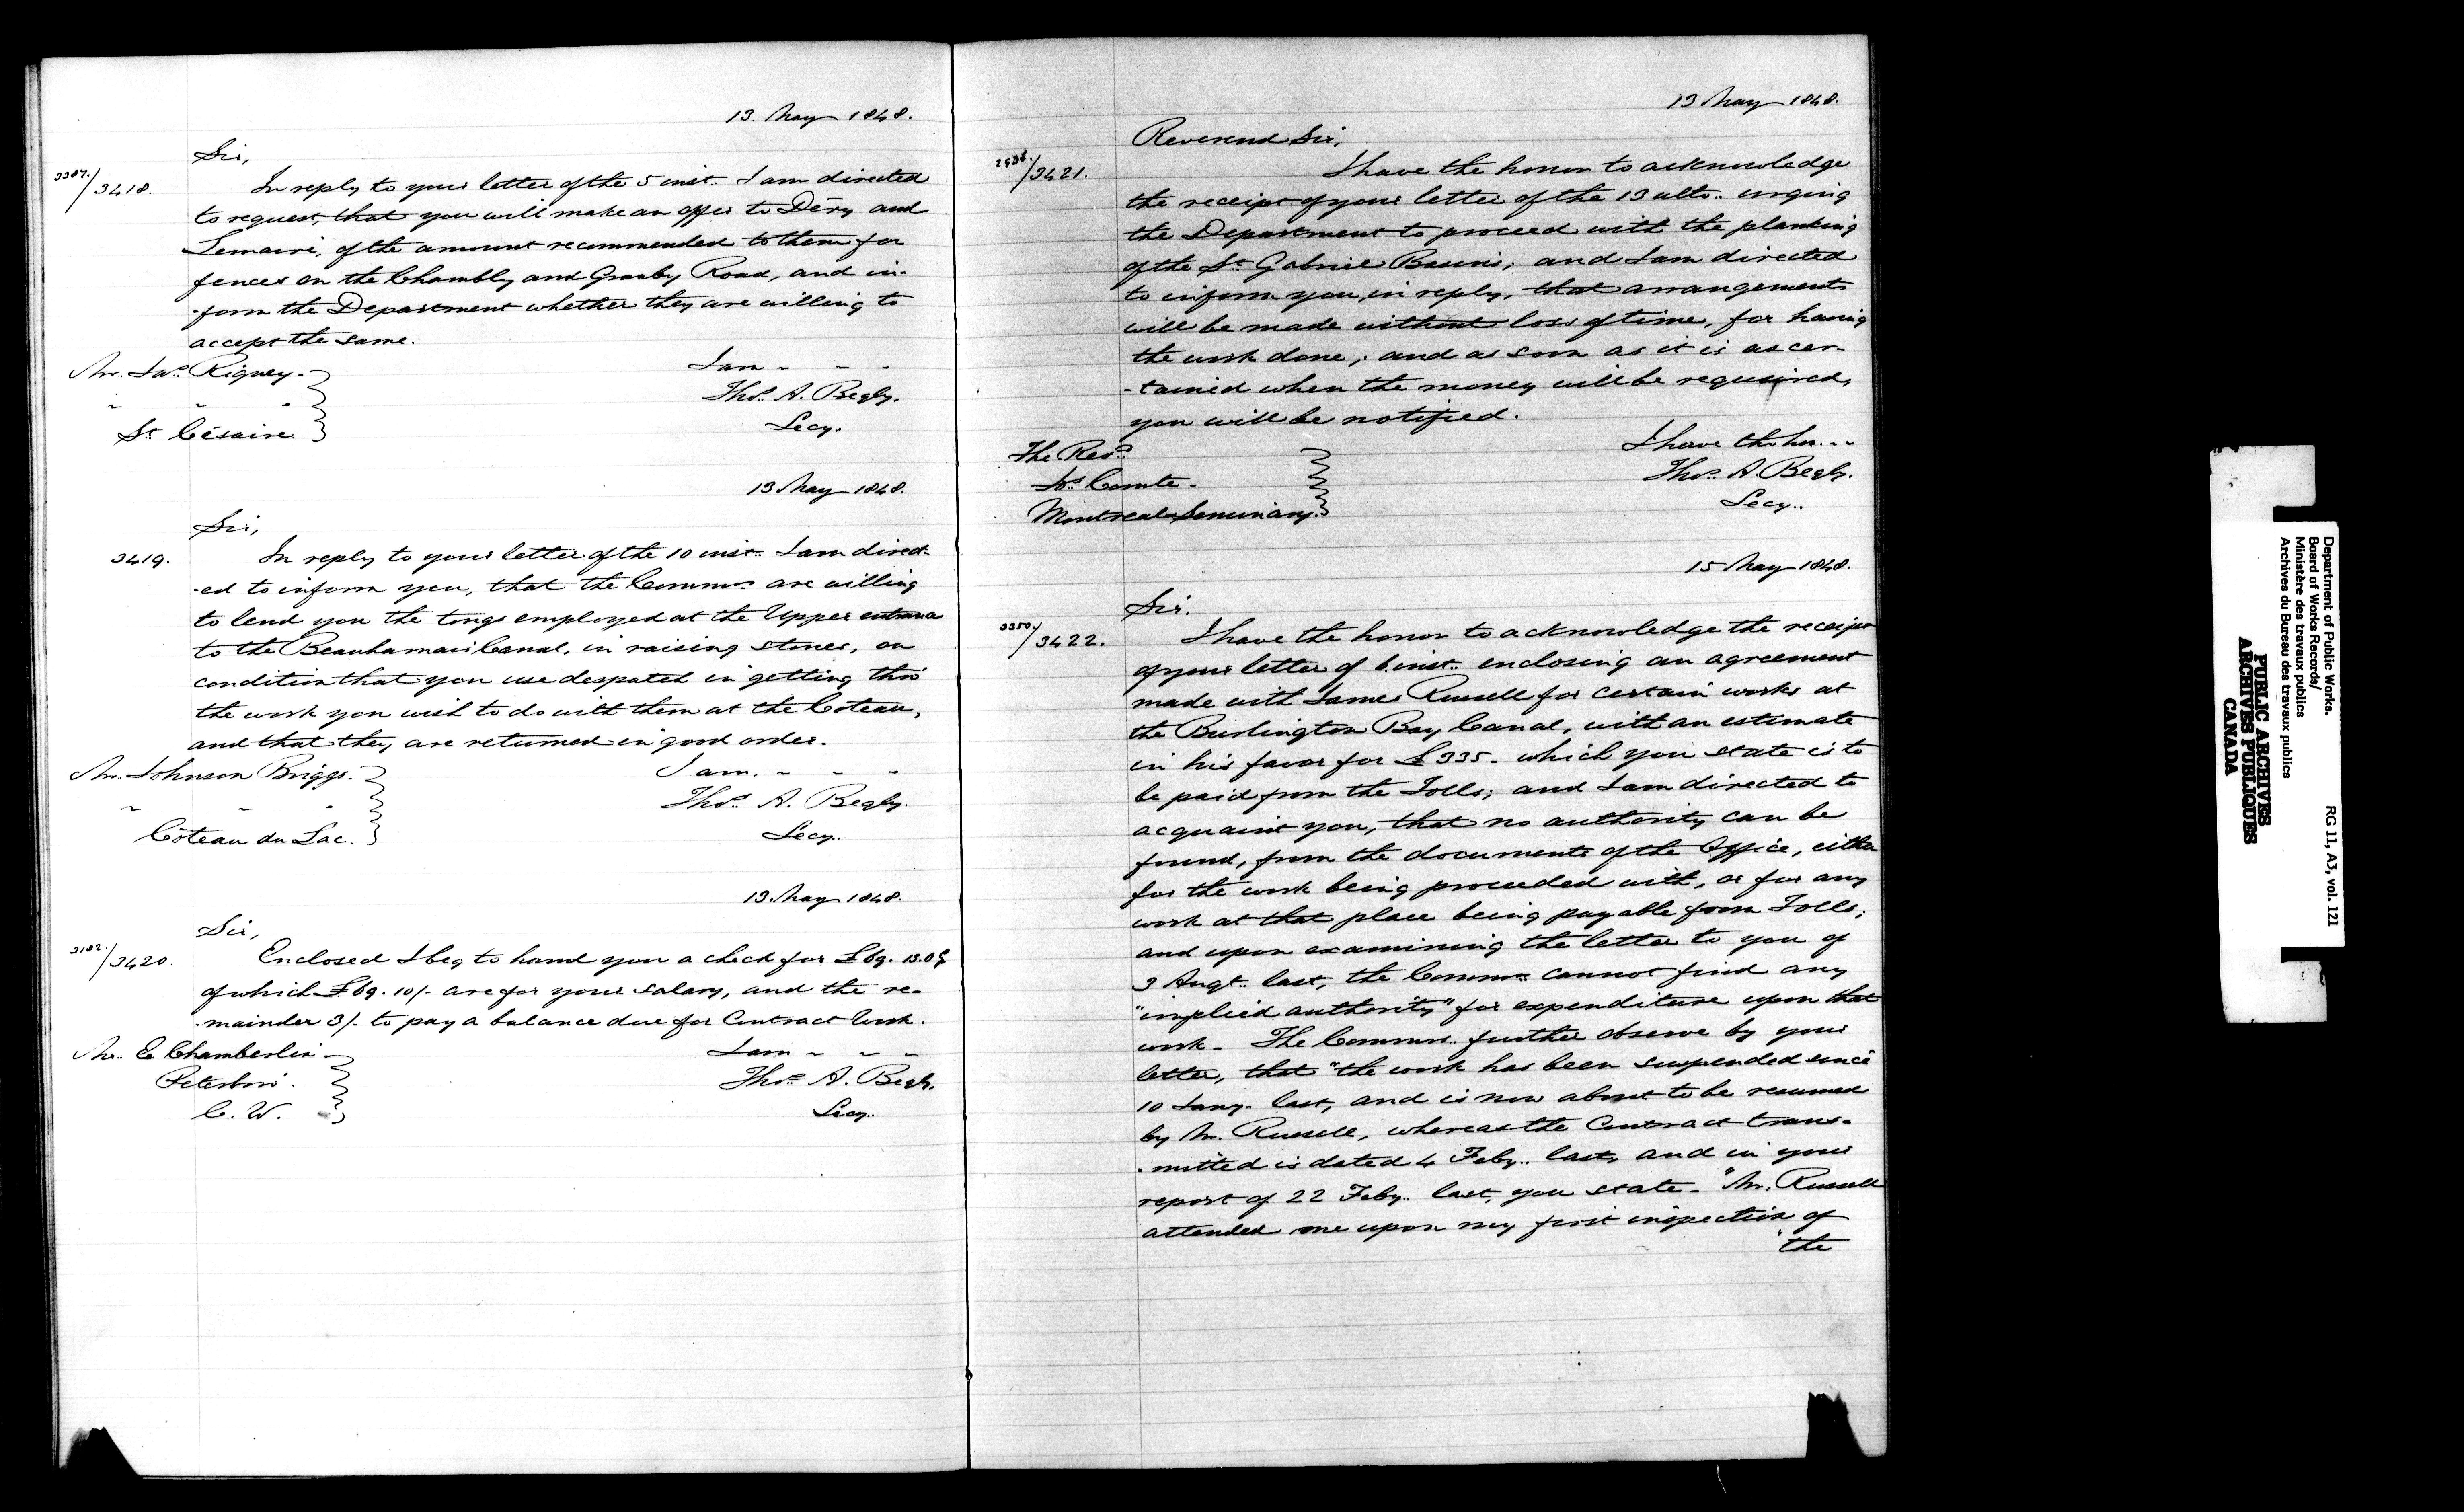 13. May 1848.
Sir,
3387./3418. In reply to your letter of the 5 inst. I am directed
to request, that you will make an offer to Déry and
Lemaire, of the amount recommended to them for
fences on the Chambly and Granby Road, and in-
-form the Department whether they are willing to
accept the same.
Mr. Jas. Rigney.
I am - - -
" " "
Thos. A. Begly.
St. Césaire.
Secy.
13 May 1848.
Sir,
3419. In reply to your letter of the 10 inst. I am direct-
-ed to inform you, that the Commrs. are willing
to lend you the tongs employed at the Upper entrance
to the Beauharnais Canal, in raising stones, on
condition that you use despatch in getting thro'
the work you wish to do with them at the Coteau,
and that they are returned in good order.
Mr. Johnson Briggs.
I am. - - -
" " "
Thos. A. Begly.
Côteau du Lac.
Secy.
13. May 1848.
Sir,
3182./3420. Enclosed I beg to hand you a check for
of which £69. 10/- are for your salary, and the re-
-mainder 3/- to pay a balance due for Contract Work.
Mr. E Chamberlin
I am - - -
Peterboro'.
Thos. A. Begly.
C. W.
Secy.
13 May 1848.
Reverend Sir,
/3421. I have the honor to acknowledge
the receipt of your letter of the 13 ulto. urging
the Department to proceed with the planking
of the St. Gabriel Basins; and I am directed
to inform you, in reply, that arrangements
will be made without loss of time, for having
the work done; and as soon as it is ascer-
-tained when the money will be required,
you will be notified.
The Revd.
I have the hon. - -
Js. Comte.
Thos. A. Begly.
Montreal Seminary.
Secy.
15 May 1848.
Sir.
3350./3422. I have the honor to acknowledge the receipt
of your letter of 6 inst. enclosing an agreement
made with James Russell for certain works at
the Burlington Bay Canal, with an estimate
in his favor for £335 - which you state is to
be paid from the Tolls; and I am directed to
acquaint you, that no authority can be
found, from the documents of the Office, either
for the work being proceeded with, or for any
work at that place being payable from Tolls;
and upon examining the letter to you of
3 Augt. last, the Commrs. cannot find any
"implied authority" for expenditure upon that
work. The Commrs. further observe by your
letter, that "the work has been suspended since
10 Jany. last, and is now about to be resumed
by Mr. Russell, whereas the Contract trans-
-mitted is dated 4 Feby. last, and in your
report of 22 Feby. last, you state - "Mr. Russell
attended me upon my first inspection of
"the
Department of Public Works.
Board of Works Records/
Ministère des travaux publics
Archives du Bureau des travaux publics
RG 11, A3, vol. 121
PUBLIC ARCHIVES
ARCHIVES PUBLIQUES
CANADA